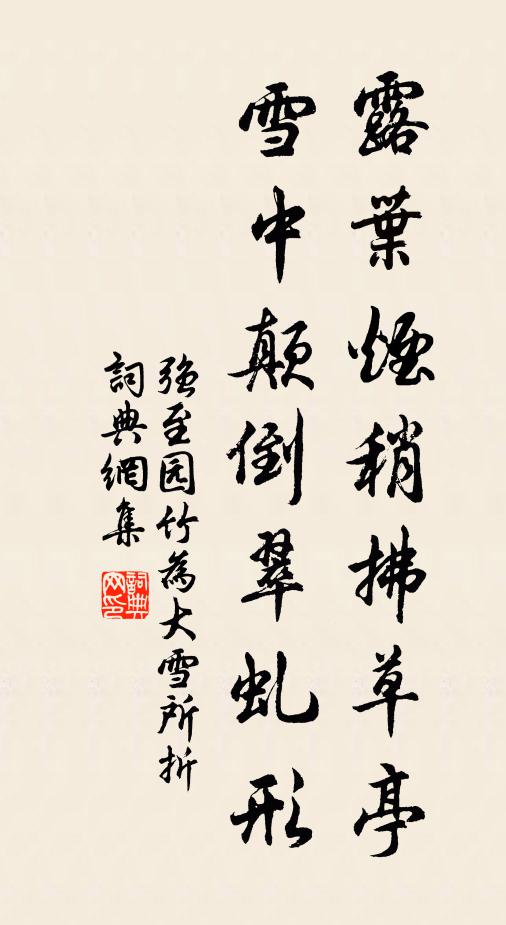 露葉煙稍拂草亭
雪中顛倒翠虬形
強至园竹為大雪所折
詞典網集
詞典网印